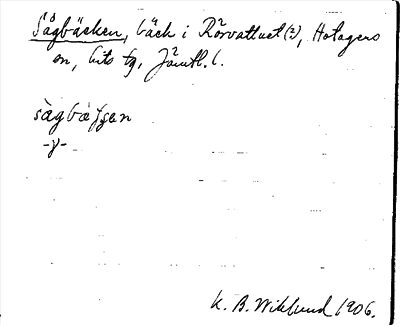 Sågbäcken, bäck i Rörvattnet (2), Hotagens
sn, Lits tg, Jämtl. l.
sàgbàʃʃen
-γ-
K. B. Wiklund 1906.